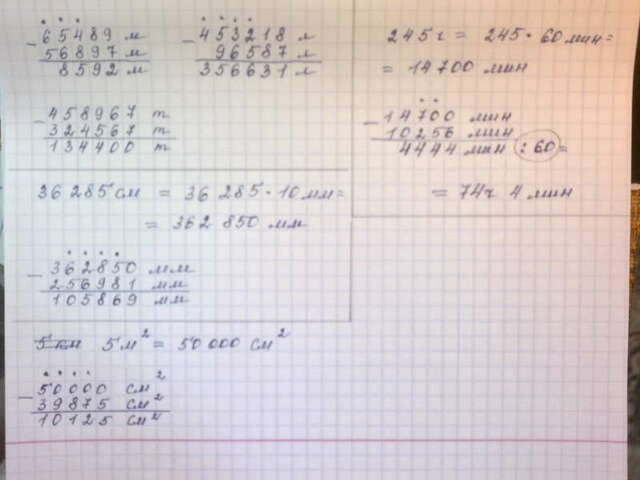 65489 м
- 56897 м
8592 м
453218 л
- 96587 л
356631 л
458967 т
- 324567 т
134400 т
36 285 см = 36 285 · 10 мм =
= 362 850 мм
362850 мм
- 256981 мм
105869 мм
5 км 5 м² = 50 000 см²
50000 см²
- 39875 см²
10125 см²
245 ч = 245 · 60 мин =
= 14700 мин
14700 мин
- 10256 мин
4444 мин : 60 =
= 74ч 4 мин